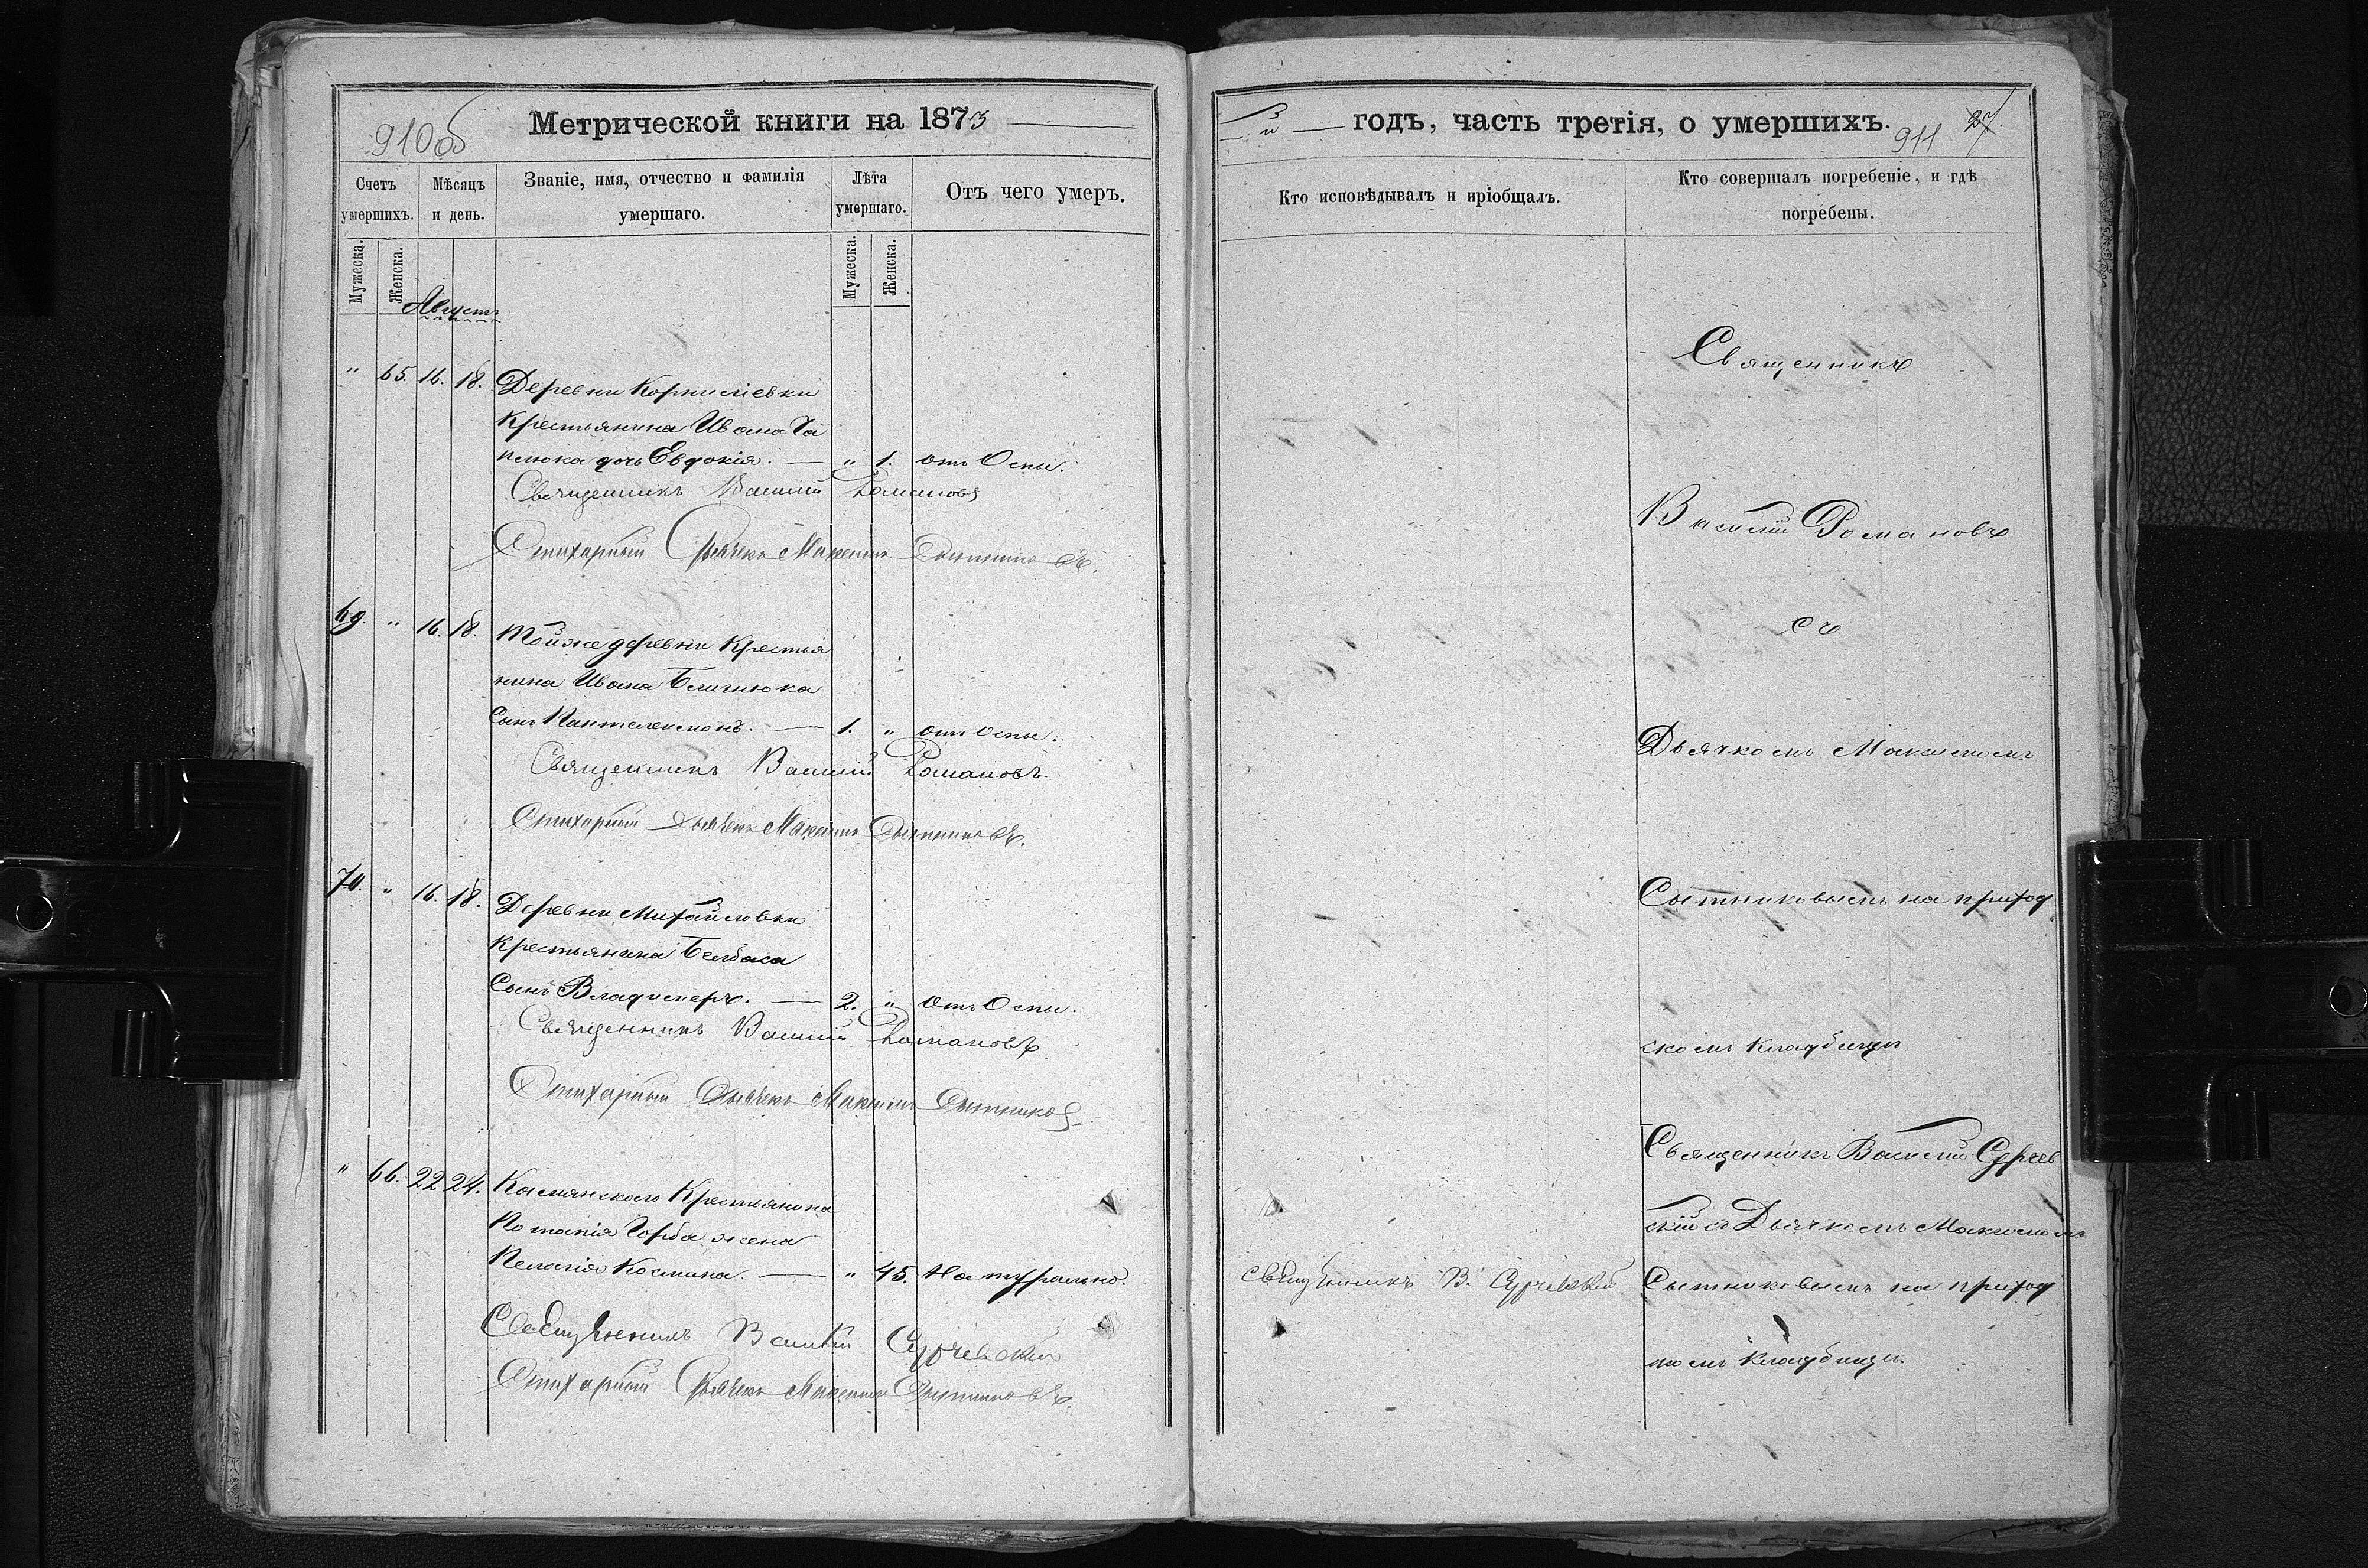 910об
Метрической книги на 1873
Счетъ умершихъ.
Мѣсяцъ и день.
Званіе, имя, отчество и фамилія умершаго.
Лѣта умершаго.
Отъ чего умеръ.
Мужеска.
Женска.
Мужеска.
Женска.
Августъ
" 65. 16. 18. Деревни Корнилiевки
Крестьянина Ивана Га
пелюка дочь Евдокія. — " 1. отъ Оспы.
Священникъ Василій Романовъ
Стихарный Дьячекъ Максимъ Сытниковъ.
69. " 16. 18. Той же деревни Крестья
нина Ивана Близнюка
Сынъ Пантелеимонъ. — 1. " отъ Оспы.
Священникъ Василій Романовъ
Стихарный Дьячекъ Максимъ Сытниковъ.
70. " 16. 18. Деревни Михайловки
Крестьянина Белбаса
Сынъ Владимеръ. — 2. " Отъ Оспы.
Священникъ Василій Романовъ
Стихарный Дьячекъ Максимъ Сытниковъ
" 66. 22 24. Камянскаго Крестьянина
Потапія Горба жена
Пелагія Космина. — " 45. Натурально.
Священникъ Василій Сурчевскій
Стихарный Дьячекъ Максимъ Сытниковъ.
й — годъ, часть третія, о умершихъ.
911 27
Кто исповѣдывалъ и пріобщалъ.
Кто совершалъ погребеніе, и гдѣ погребены.
Священникъ
Василій Романовъ
съ
Дьячкомъ Максимомъ
Сытниковымъ на приход
скомъ кладбищѣ
Священникъ Василій Сурчев
скій съ Дьячкомъ Максимомъ
Священникъ В. Сурчевскій
Сытниковымъ на приход
комъ кладбищѣ.